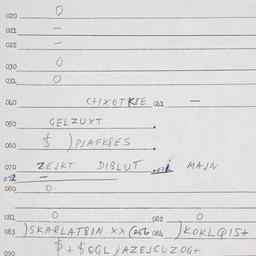 020 0
021 —
022 —
030 0
031 0
040 CHIXOTKSE 041 —
050 GELZUXT
060 $ )PJAFKSES
070 ZEJKT DIBLUT .071 MAJN
072 —
080 0
081 0 082 0
083 )SKARLATSIN XX (256 084 )KOKLQIS+
090 $+$OGL JAZEJCUZOG+